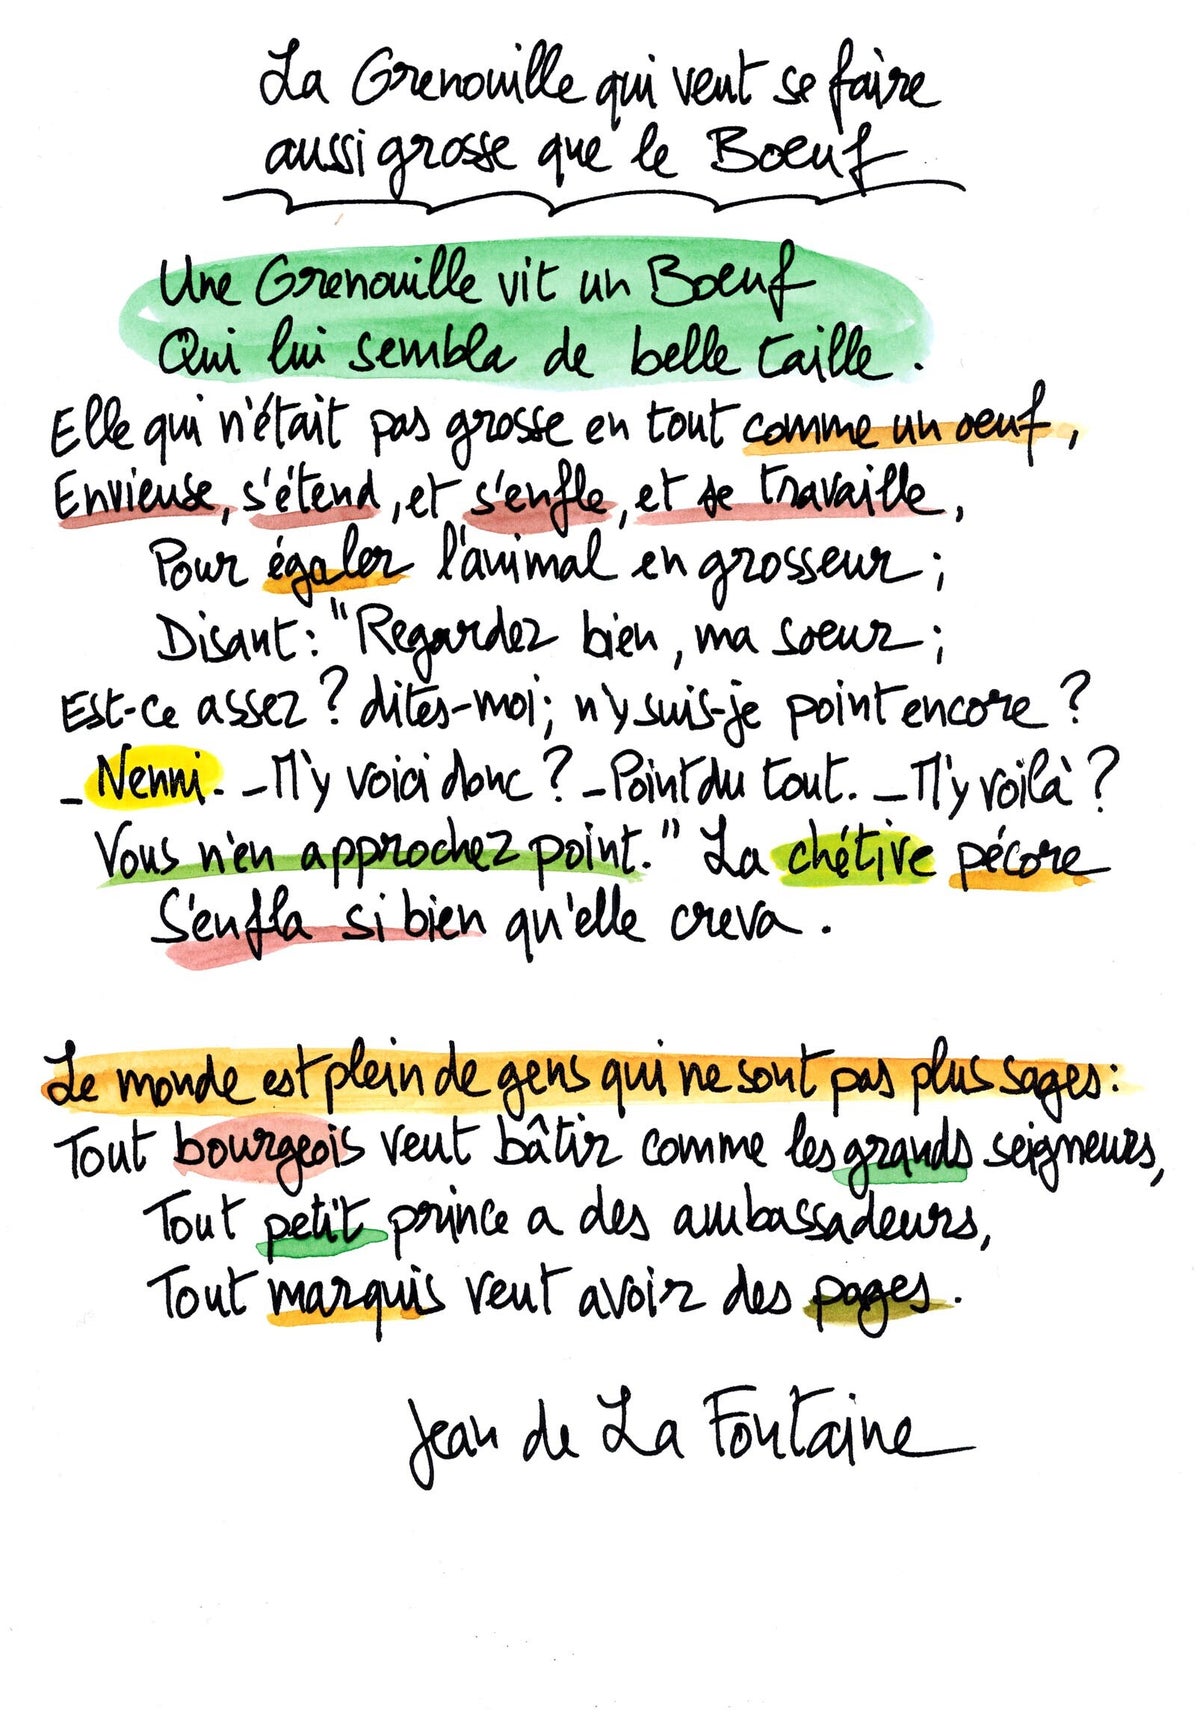 La Grenouille qui veut se faire
aussi grosse que le Boeuf
Une Grenouille vit un Boeuf
Qui lui sembla de belle taille.
Elle qui n'était pas grosse en tout comme un oeuf,
Envieuse, s'étend, et s'enfle, et se travaille,
Pour égaler l'animal en grosseur;
Disant: "Regardez bien, ma soeur;
Est-ce assez? dites-moi; n'y suis-je point encore?
_ Nenni. _ M'y voici donc? _ Point du tout. _ M'y voilà?
Vous n'en approchez point." La chétive pécore
S'enfla si bien qu'elle creva.
Le monde est plein de gens qui ne sont pas plus sages:
Tout bourgeois veut bâtir comme les grands seigneurs,
Tout petit prince a des ambassadeurs,
Tout marquis veut avoir des pages.
Jean de La Fontaine